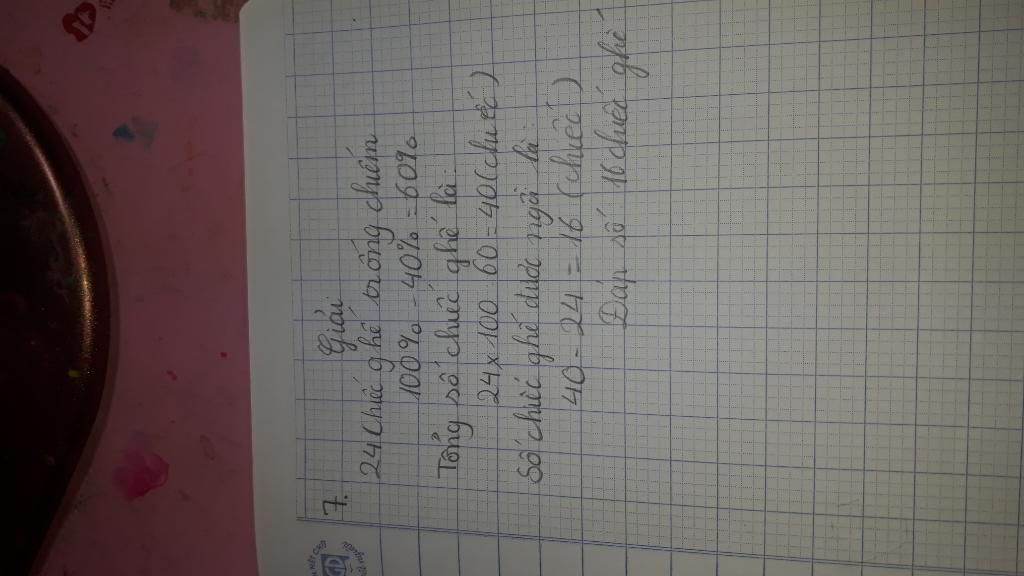 7.
Giải
24 Chiếc ghế trống chiếm
100% - 40% = 60%
Tổng số chiếc ghế là:
24 x 100 : 60 = 40 (chiếc)
Số chiếc ghế được ngồi là:
40 - 24 = 16 (chiếc)
Đáp số 16 chiếc ghế